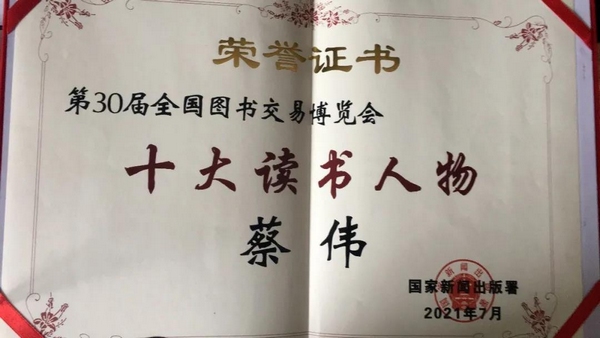 荣誉证书
第30届全国图书交易博览会
十大读书人物
蔡伟
国家新闻出版署
2021年7月